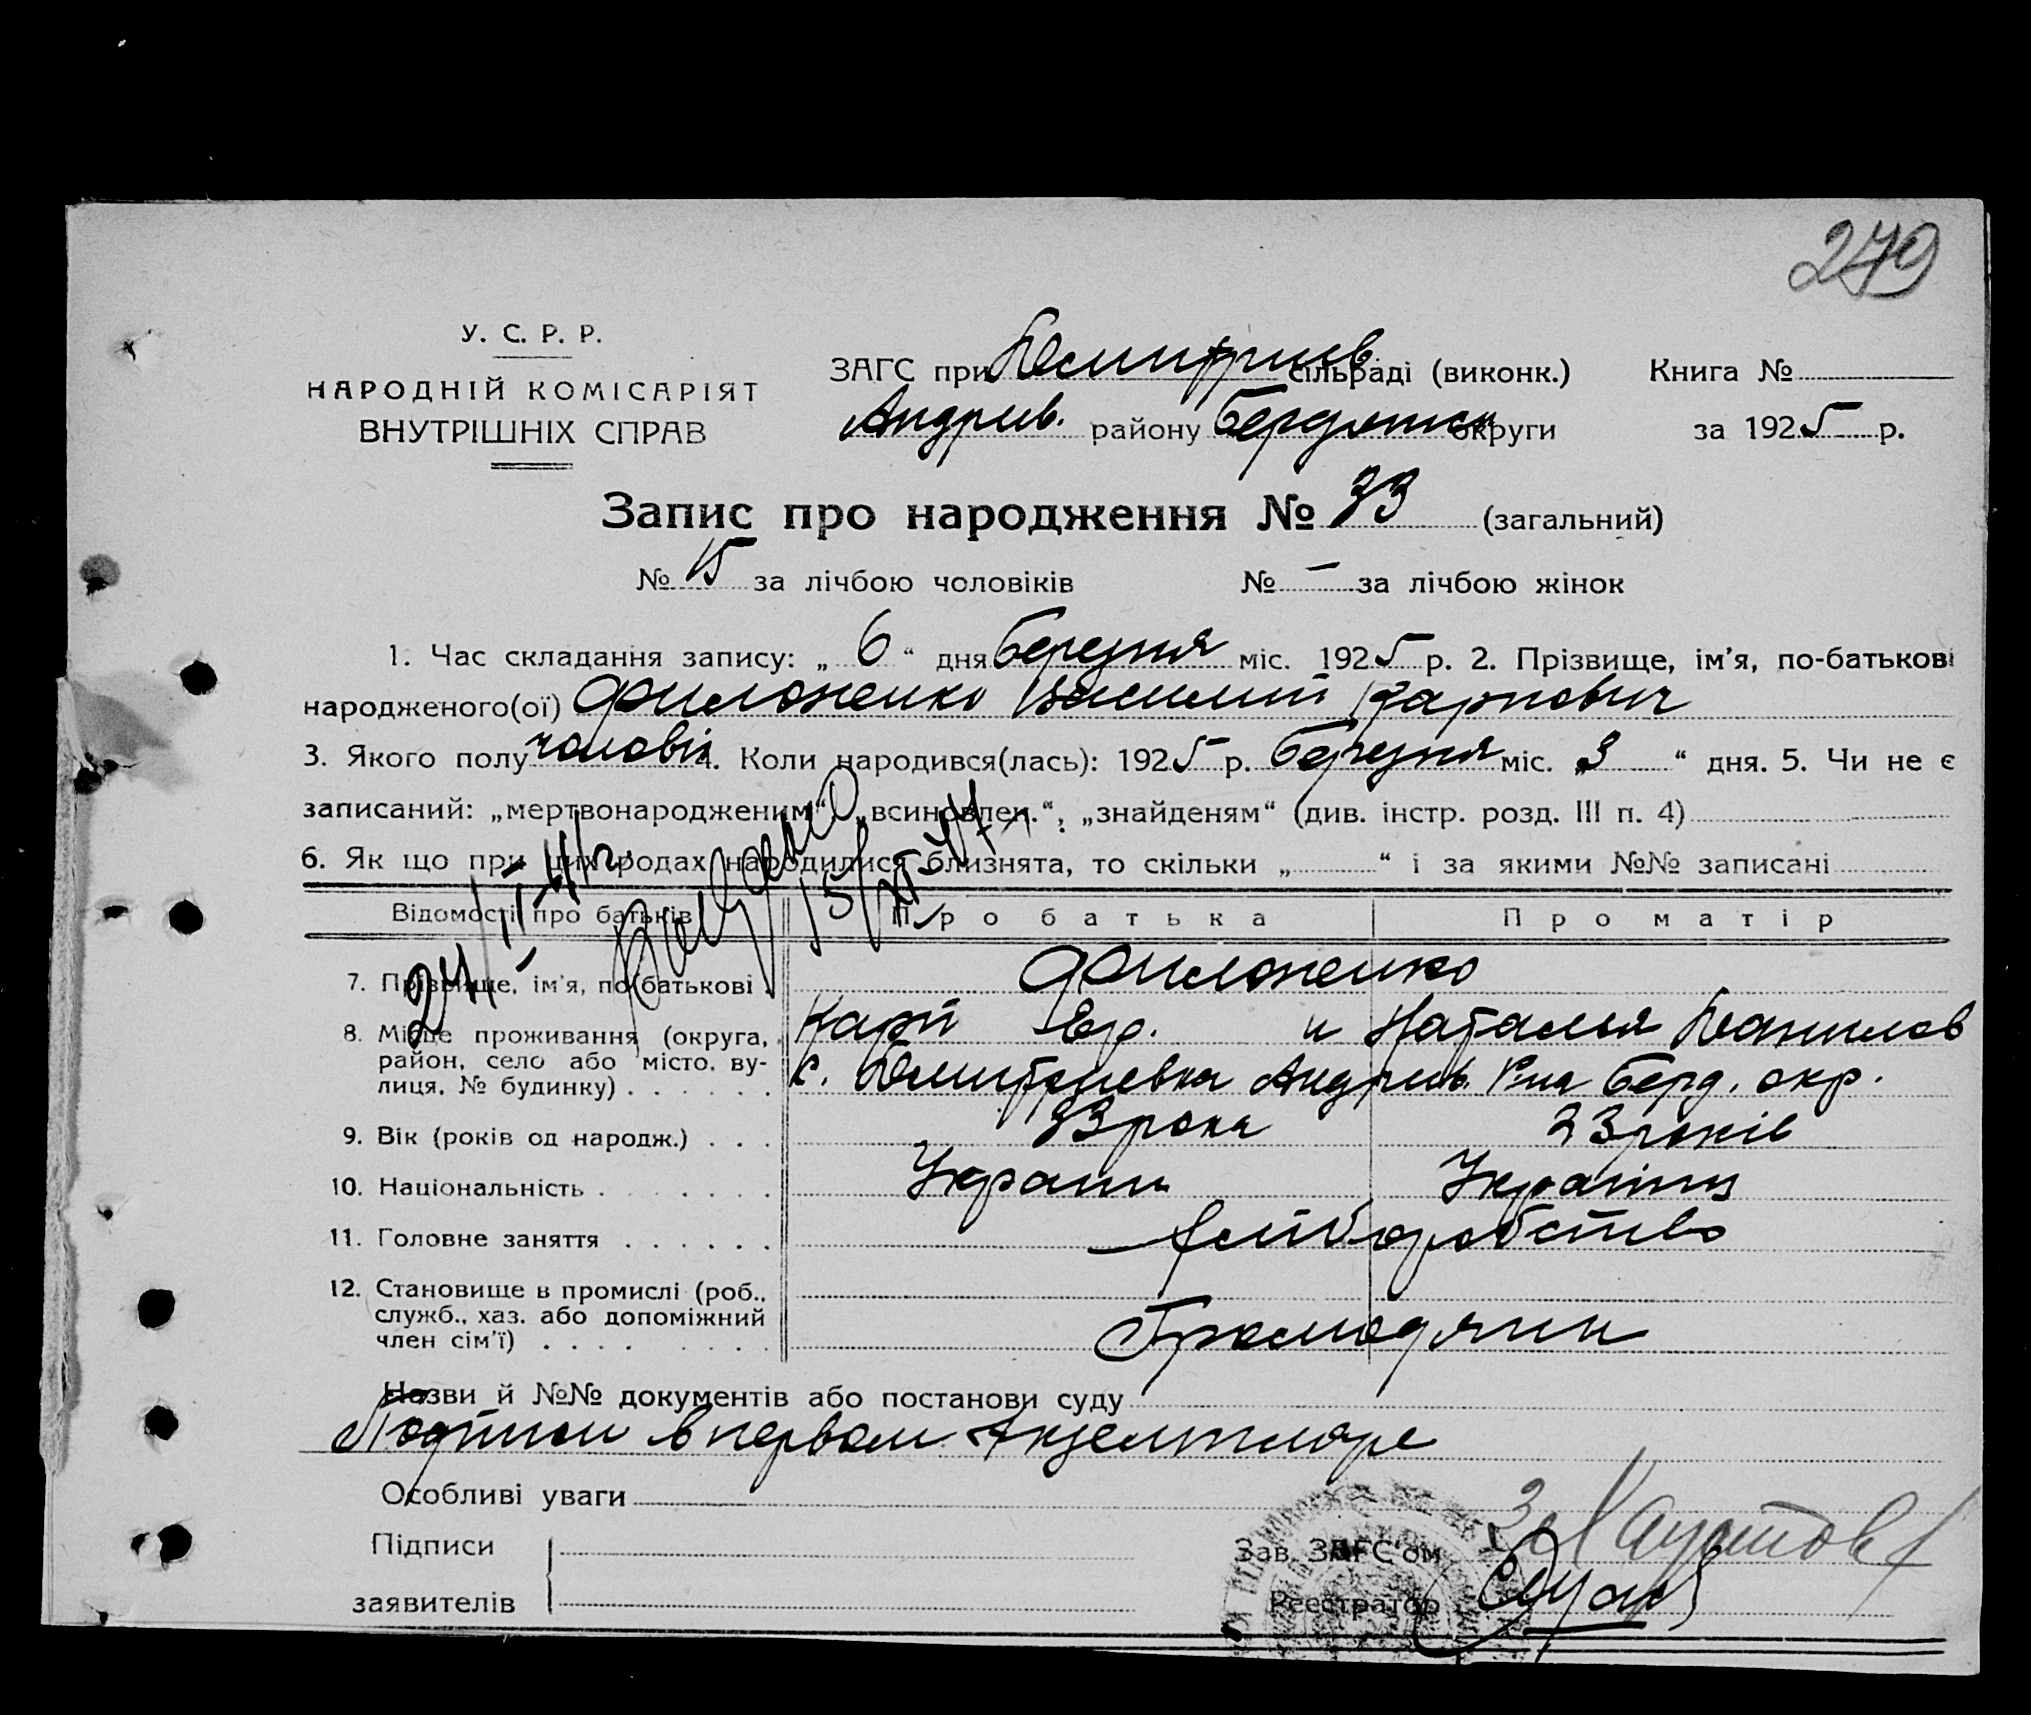 279
У. С. Р. Р.
НАРОДНІЙ КОМІСАРІЯТ
ВНУТРІШНІХ СПРАВ
ЗАГС при Дмитриев сільраді (виконк.) Книга №
Андрив. району Бердянськ округи за 1925 р.
Запис про народження № 33 (загальний)
№ 15 за лічбою чоловіків № — за лічбою жінок
1. Час складання запису: „ 6 “ дня березня міс. 1925 р. 2. Прізвище, ім'я, по-батькові
народженого(ої) Филоненко Василий Карпович
3. Якого полу чоловік 4. Коли народився(лась): 1925 р. березня міс. „3 “ дня. 5. Чи не є
записаний: „мертвонародженим“, „всиновлен.“, „знайденям“ (див. інстр. розд. III п. 4)
6. Як що при цих родах народилися близнята, то скільки „ “ і за якими №№ записані
Відомості про батьків Про батька Про матір
7. Прізвище, ім'я, по-батькові Филоненко
Карп и Наталья Данилов
8. Місце проживання (округа, район, село або місто, ву-
лиця, № будинку) с. Дмитриевка Андрив. Р-на Берд. окр.
9. Вік (років од народж.) 33 роки 23 років
10. Національність Украин Україн
11. Головне заняття Хліборобство
12. Становище в промислі (роб.,
служб., хаз. або допоміжний
член сім'ї)
Громодянин
Назви й №№ документів або постанови суду
Подписи в первом экземпляре
Особливі уваги
Підписи
заявителів
Зав. ЗАГС'ом
Реєстратор